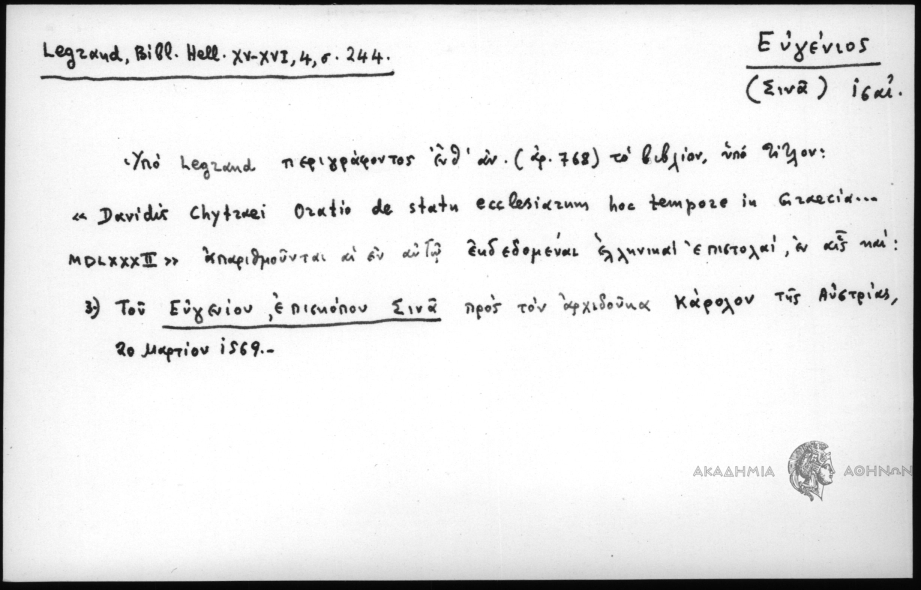 Legrand, Bibl. Hell. XV-XVI, 4, σ. 244.
Εὐγένιος
(Σινᾶ)
Ὑπό Legrand περιγράφοντος ἔνθ' ἀν. (ἀρ. 768) τό βιβλίον, ὑπό τίτλον:
« Davidis Chytraei Oratio de statu ecclesiarum hoc tempore in Graecia...
MDLXXXII » ἀπαριθμοῦνται αἱ ἐν αὐτῷ ἐκδεδομέναι ἑλληνικαί ἐπιστολαί, ἐν αἷς καί:
3) Τοῦ Εὐγενίου, ἐπισκόπου Σινᾶ πρός τόν ἀρχιδοῦκα Κάρολον τῆς Αὐστρίας,
20 Μαρτίου 1569.-
ΑΚΑΔΗΜΙΑ ΑΘΗΝΩΝ